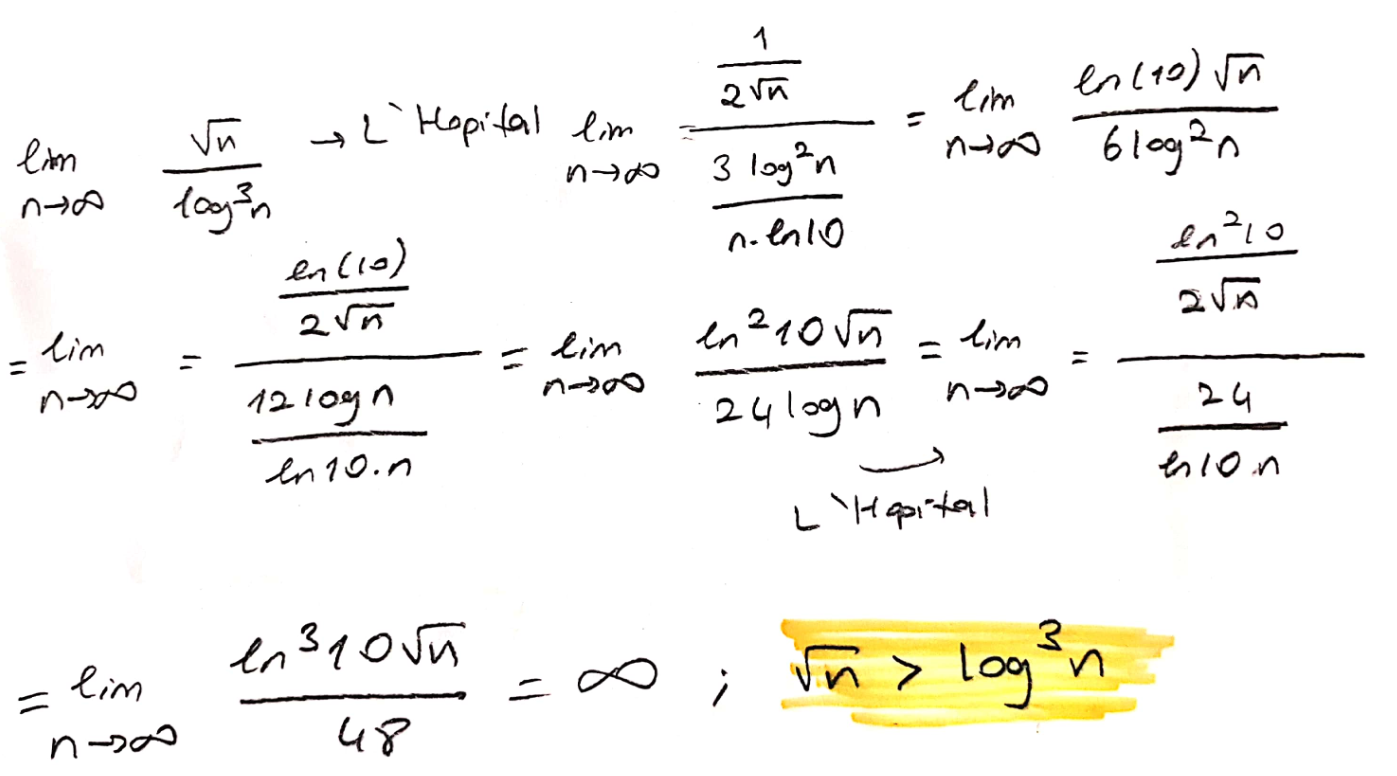 lim n→∞ √n / log³n → L`Hopital lim n→∞ = (1 / 2√n) / (3 log²n / n.ln10) = lim n→∞ ln(10) √n / 6 log²n
= lim n→∞ = (ln(10) / 2√n) / (12 log n / ln10.n) = lim n→∞ ln²10√n / 24 log n = lim n→∞ = (ln²10 / 2√n) / (24 / ln10.n)
L`Hopital
= lim n→∞ ln³10√n / 48 = ∞ ; √n > log³n